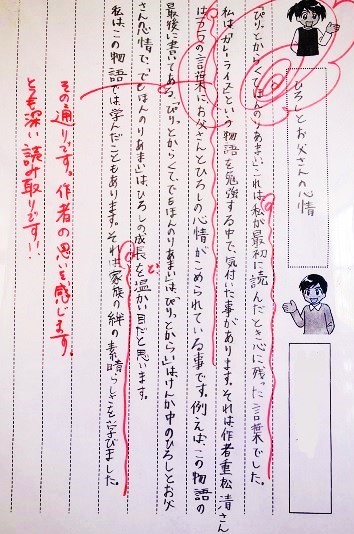 ひろしとお父さんの心情
「ぴりっとからくてほんのりあまい。」これは私が最初に読んだとき心に残った言葉でした。
私はカレーライスという物語を勉強する中で、気付いた事があります。それは作者重松清さん
は の言葉にお父さんとひろしの心情がこめられている事です。例えば、この物語の
最後に書いてある「ぴりっとからくて、でもほんのりあまい」は「ぴりっとからい」はけんか中のひろしとお父
さんの心情で、「でもほんのりあまい」は、ひろしの成長を温かい目だと思います。
私はこの物語では学んだこともあります。それは家族の絆の素晴らしさを学びました。
その通りです。作者の思いを感じます。
とても深い読み取りです!!